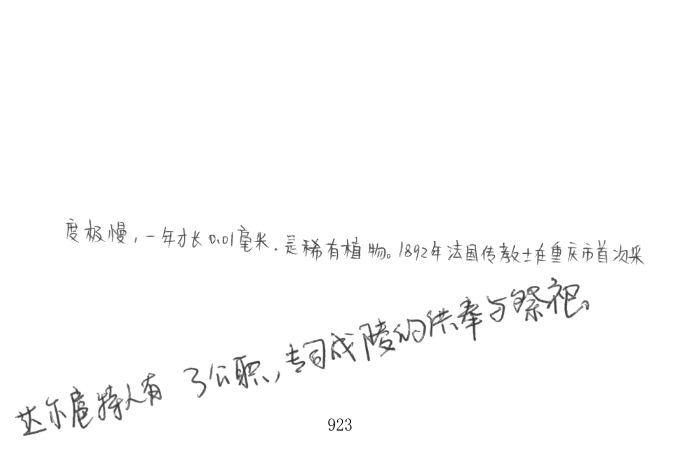 度极慢,一年才长0.01毫米.是稀有植物。1892年法国传教士在重庆市首次采
达尔扈特人有了公职,专司成陵的供奉与祭祀。
923